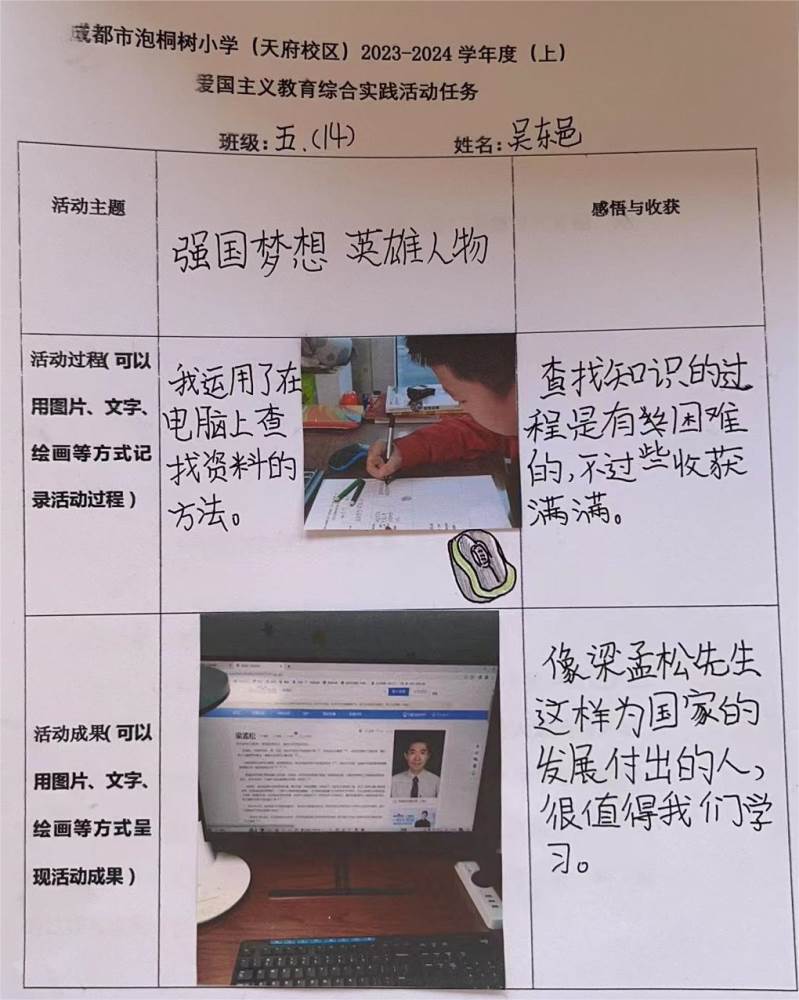 成都市泡桐树小学（天府校区）2023-2024 学年度（上）
爱国主义教育综合实践活动任务
班级：五.（14） 姓名：吴东邑
活动主题
强国梦想 英雄人物
感悟与收获
活动过程（可以
用图片、文字、
绘画等方式记
录活动过程）
我运用了在
电脑上查
找资料的
方法。
查找知识的过
程是有些困难
的，不过些收获
满满。
活动成果（可以
用图片、文字、
绘画等方式呈
现活动成果）
梁孟松
像梁孟松先生
这样为国家的
发展付出的人，
很值得我们学
习。